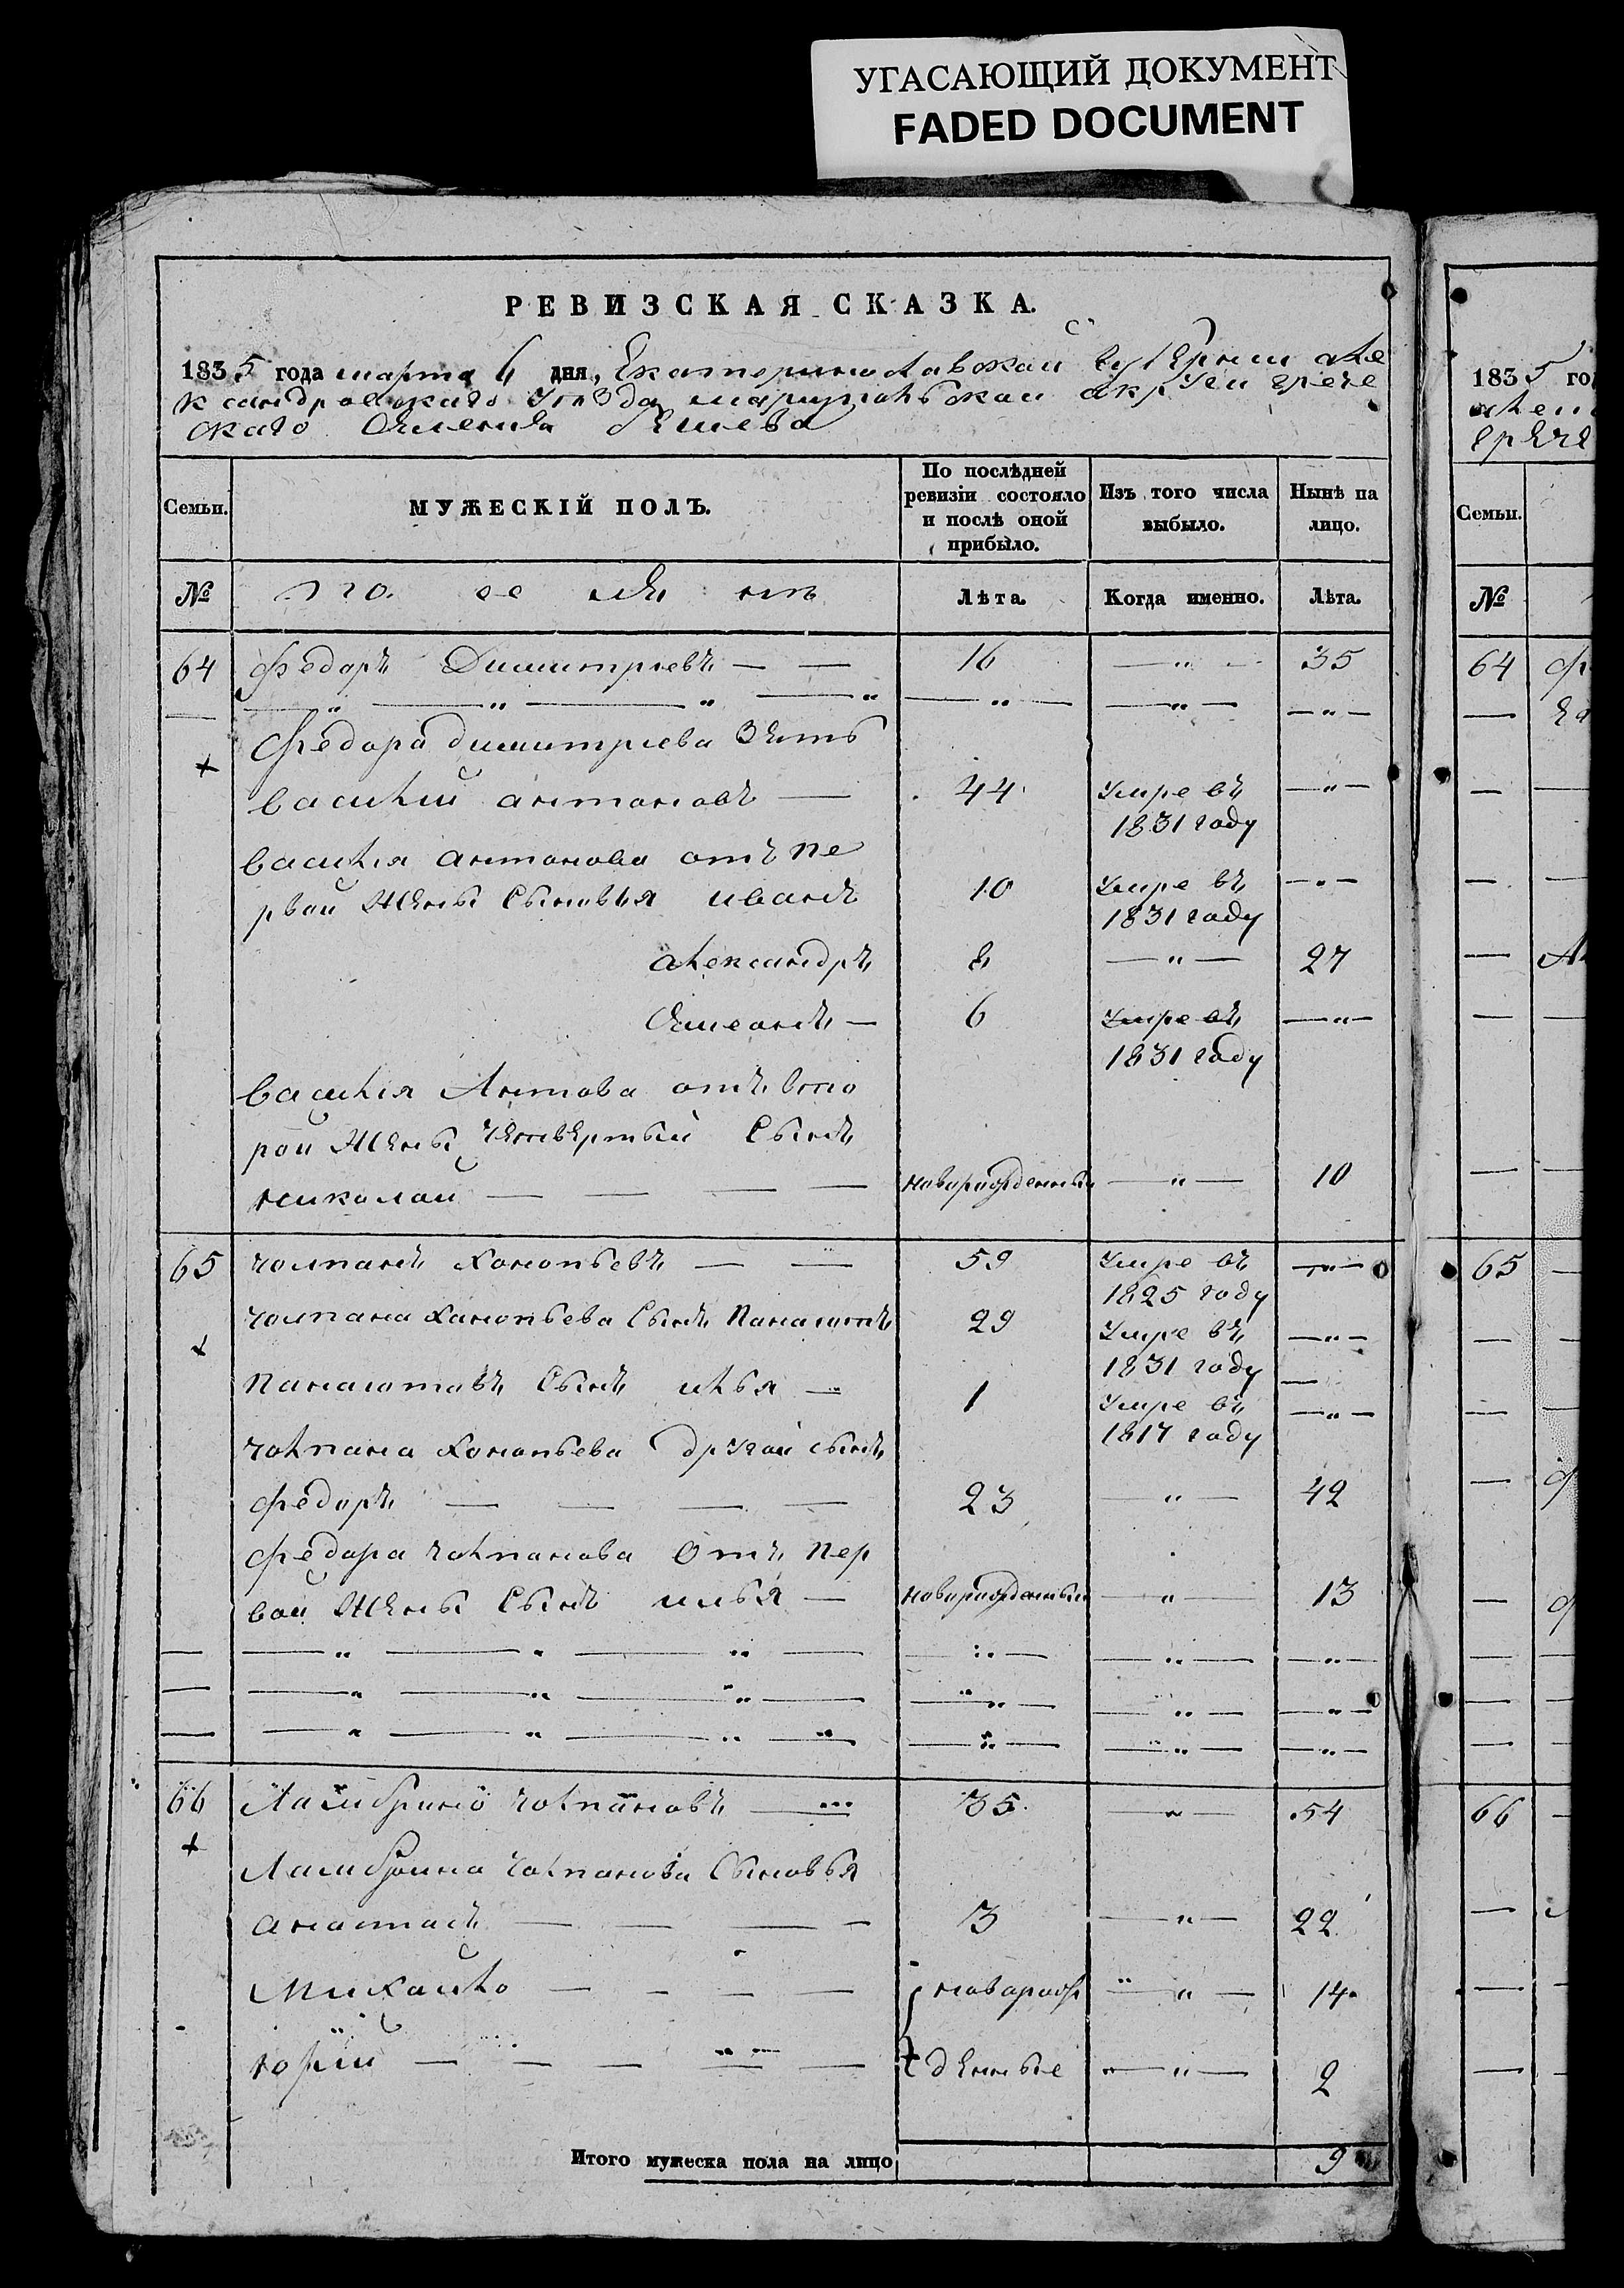 УГАСАЮЩИЙ ДОКУМЕНТ
FADED DOCUMENT
РЕВИЗСКАЯ СКАЗКА.
1835 года марта 6 дня, Екатеринославской губернии але
ксандровского уезда мариупольской округи грече
скаго селения бешева
Семьи.
МУЖЕСКІЙ ПОЛЪ.
По послѣдней ревизіи состояло и послѣ оной прибыло.
Изъ того числа выбыло.
Нынѣ на лицо.
№
Лѣта.
Когда именно.
Лѣта.
64 Федоръ Димитриевъ — — 16 —"— 35
Федора димитриева Зять
василий антоновъ — 44 умре въ —"—
1831 году
василия антонова отъ пе
рвой жены сыновья иванъ 10 умре въ —"—
1831 году
александръ 8 —"— 27
Симеонъ — 6 умре въ —"—
1831 году
василия Антова отъ вто
рой жены четвертый сынъ
николай — — — — новорожденный —"— 10
65 чолпанъ хонопьевъ — — 59 умре въ —"—
1825 году
чолпана хонопьева сынъ Панаиотъ 29 умре въ —"—
1831 году
Панаиотовъ сынъ илья — 1 умре въ —"—
1817 году
чолпана хонопьева другой сынъ
федоръ — — — — 23 —"— 42
федора чолпанова отъ пер
вой жены сынъ илья — новорожденный —"— 13
66 Ламбрино чолпановъ — 35 —"— 54
Ламбрина чолпанова сыновья
анастасъ — — — — 3 —"— 22
Михайло — — — — новорож —"— 14
юрий — — — — денные —"— 2
Итого мужеска пола на лицо 9
1835 го
грече
Семьи.
№
64
65
66